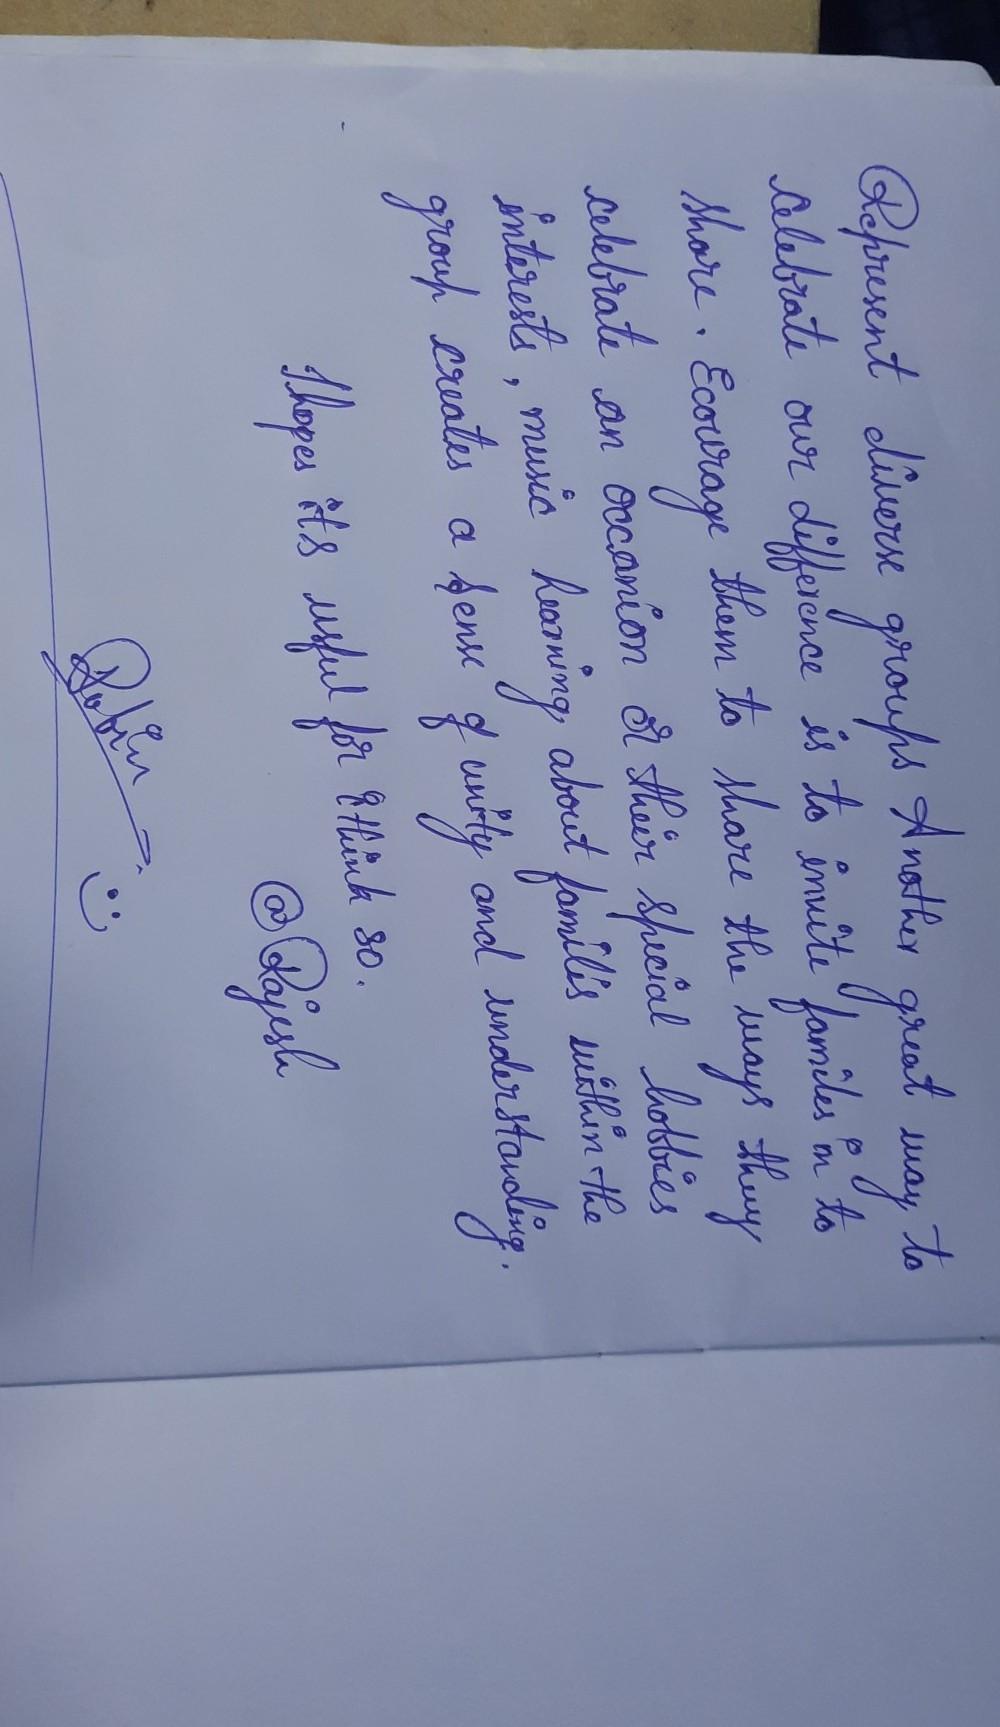 Represent diverse groups Another great way to
celebrate our difference is to invite familes in to
share. Ecourage them to share the ways they
celebrate an occasion or their special hobbies
interests, music hearing about familis within the
group creates a sense of unity and understanding.
Ihopes it's usful for I think so.
@Rajesh
Robin